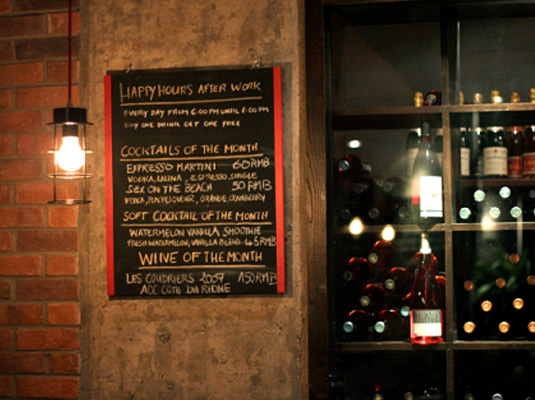 HAPPY HOURS AFTER WORK
EVERY DAY FROM 6:00PM UNTIL 8:00PM
BUY ONE DRINK GET ONE FREE
COCKTAILS OF THE MONTH
ESPRESSO MARTINI 60RMB
VODKA, KALHUA, ESPRESSO, SINGLE
SEX ON THE BEACH 50RMB
VODKA, PEACH LIQUEUR, ORANGE, CRANBERRY
SOFT COCKTAIL OF THE MONTH
WATERMELON VANILLA SMOOTHIE
FRESH WATERMELON, VANILLA BLEND 45RMB
WINE OF THE MONTH
LES COUDRIERS 2007 150RMB
AOC COTE DU RHONE